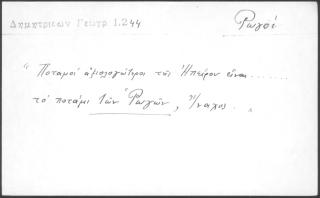 Δημητριεων Γεωγρ 1.244
Ρωγοί
"Ποταμοί ἀξιολογώτεροι τῆς Ἠπείρου εἶναι.......
τό ποτάμι τῶν Ῥωγῶν, Ἴναχος..."